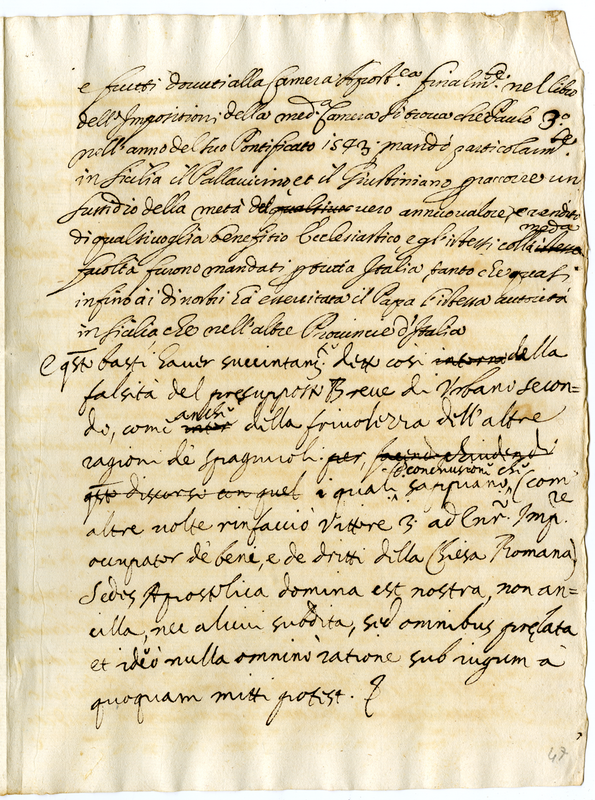 e frutti dovuti alla Camera Apost.ca finalm.te nel libro
dell'Impositioni della med.a Camera si trova che Paulo 3.o
nell'anno del suo Pontificato 1543. mandò particolarm.te
in Sicilia il Pallavicino et il Giustiniano p riscorrere un
sussidio della metà del qualsivo vero annuo valore, e rendite
di qualsivoglia benefitio Ecclesiastico e gl'istessi colla istessa
meda
facoltà furono mandati p tutta Italia, tanto che quasi
infino a i dì nostri hà essercitata il Papa l'istessa autorità
in Sicilia che nell'altre Provincie d'Italia
E q̃sto basti haver succintam.te detto così della
falsità del presupposto Breve di Urbano Secon=
do, come anche della frivolezza dell'altre
ragioni de spagnuoli per,
conclusioni che
q̃sto discorso con quel i quali sappiano, (come
altre volte rinfacciò Vittore 3. ad Enr. Imp.re
occupator de beni, e de dritti della Chiesa Romana)
Sedes Apostolica domina est nostra, non an=
cilla, nec alicui subdita, sed omnibus prelata
et ideò nulla omninò ratione sub iugum à
quoquam mitti potest.
47